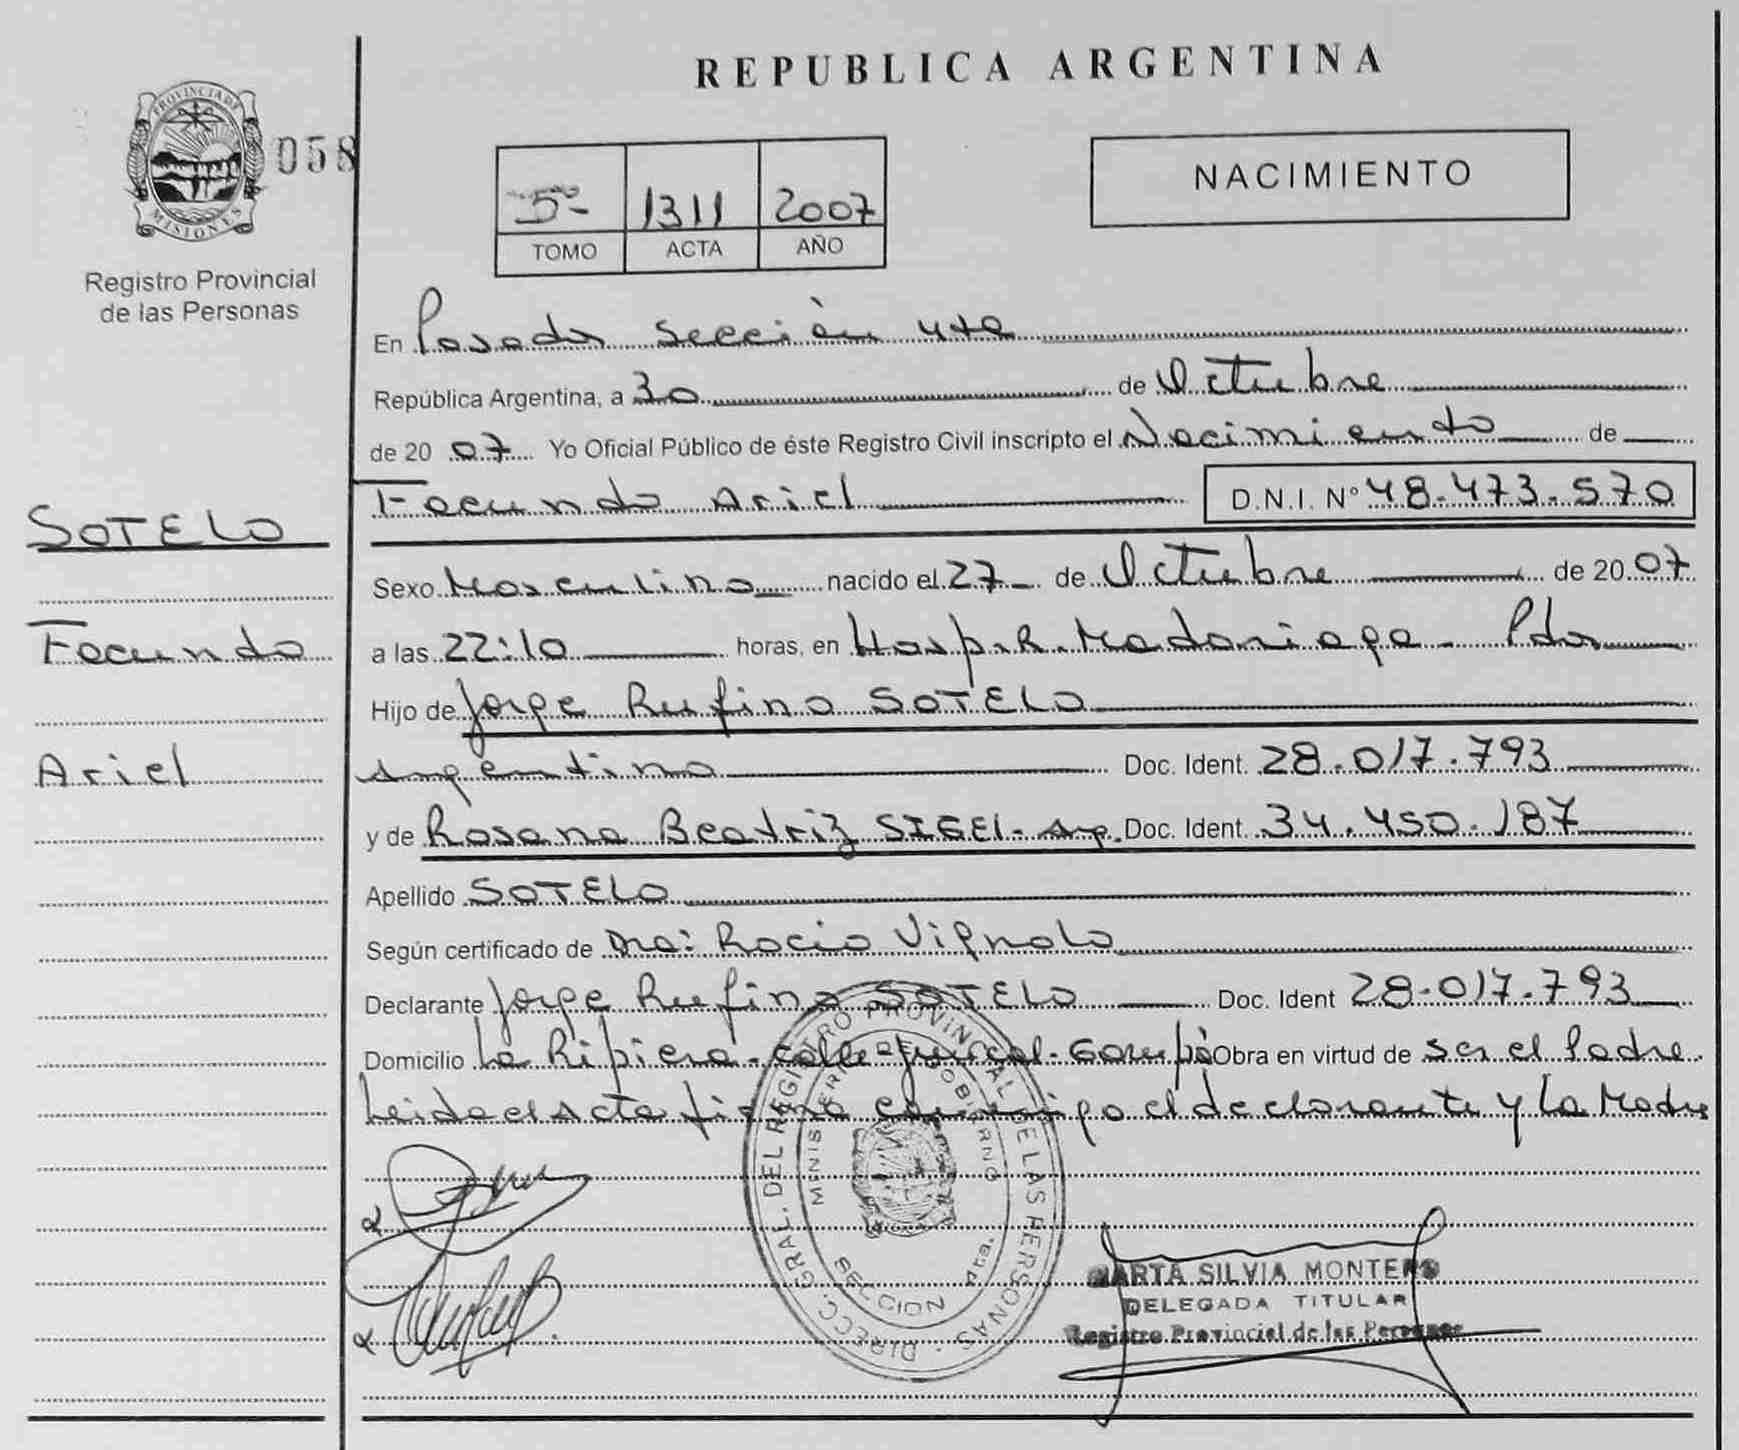 REPUBLICA ARGENTINA
PROVINCIA DE
MISIONES
058
Registro Provincial
de las Personas
5º- 1311 2007
TOMO ACTA AÑO
NACIMIENTO
En Posadas Sección 4ta
República Argentina, a 30 de Octubre
de 2007 Yo Oficial Público de éste Registro Civil inscripto el Nacimiento de
Facundo Ariel D.N.I. Nº 48.473.570
SOTELO
Facundo
Ariel
Sexo Masculino nacido el 27 de Octubre de 2007
a las 22:10 horas, en Hosp. R. Madariaga - Pdas
Hijo de Jorge Rufino SOTELO
Argentino Doc. Ident. 28.017.793
y de Rosana Beatriz SIGEL - Arg. Doc. Ident. 34.450.187
Apellido SOTELO
Según certificado de Dra: Rocio Vignolo
Declarante Jorge Rufino SOTELO Doc. Ident 28.017.793
Domicilio La Ribiera - Calle - Garupá Obra en virtud de ser el Padre.
Leida el Acta firma conmigo el declarante y La Madre
DIRECC. GRAL. DEL REGISTRO PROVINCIAL DE LAS PERSONAS
MINISTERIO DE GOBIERNO
SECCION 4ta.
MARTA SILVIA MONTERO
DELEGADA TITULAR
Registro Provincial de las Personas